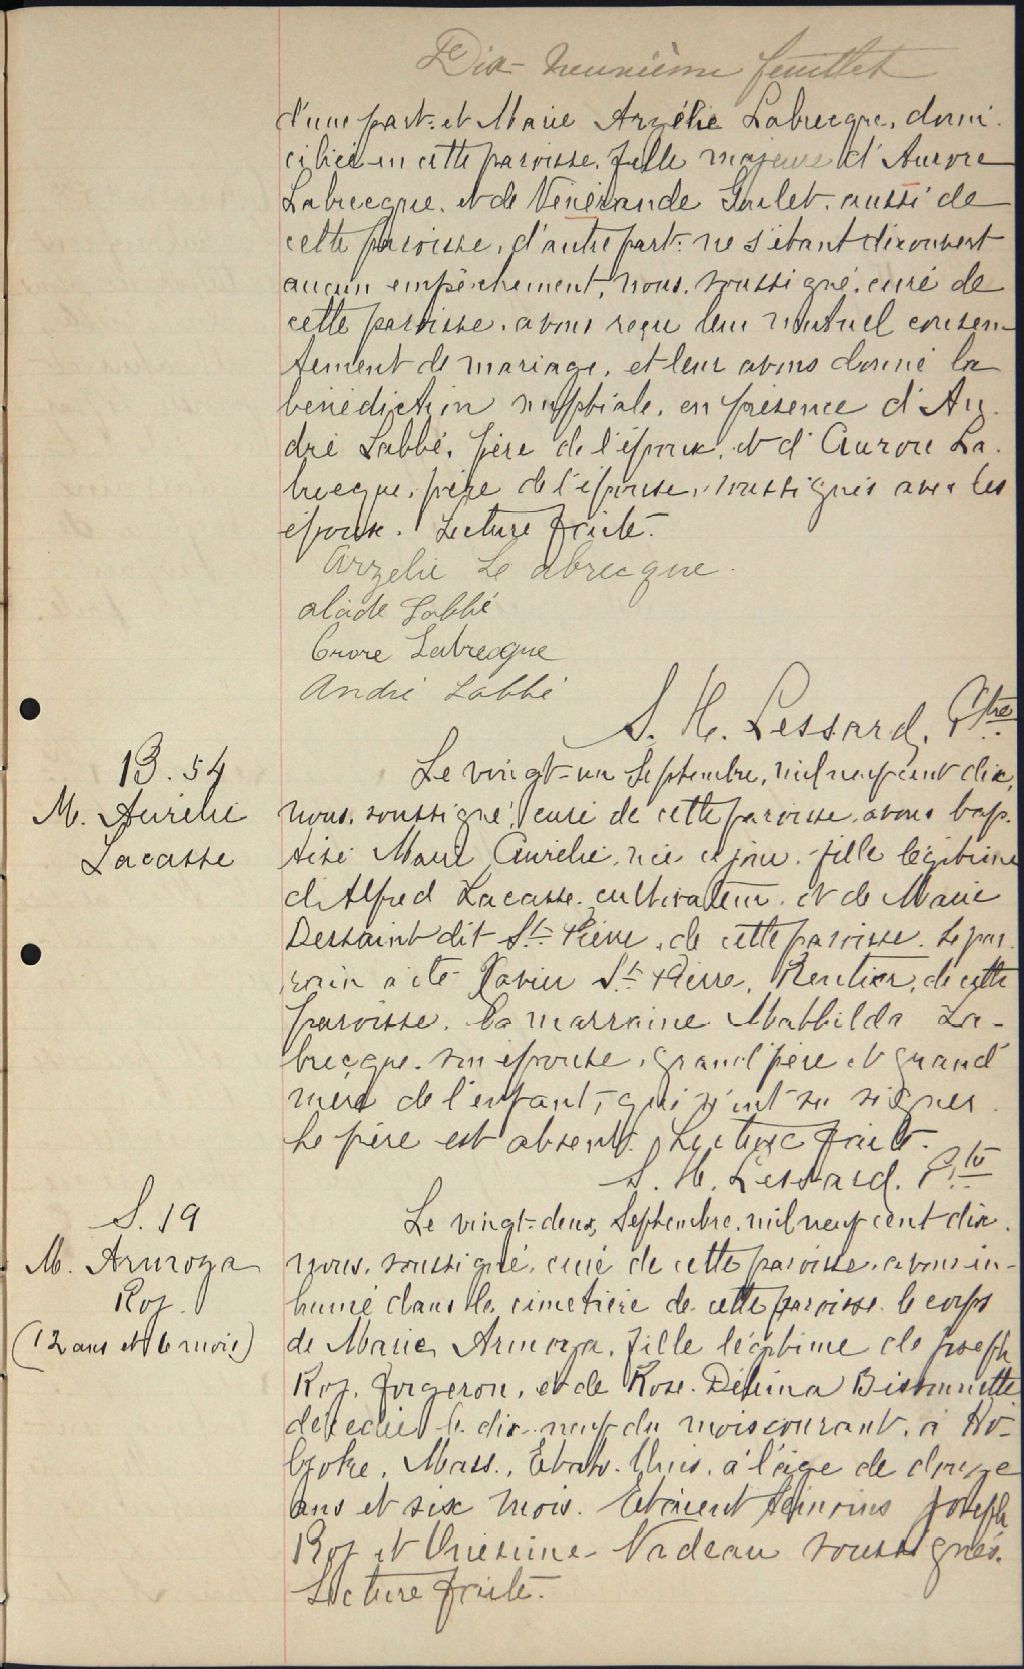 Dix-neuvième feuillet
d'une part. et Marie Arzélie Labrecque, domi-
ciliée en cette paroisse, fille majeure d'Aurore
Labrecque, et de Vénérande Goulet, aussi de
cette paroisse, d'autre part: ne s'étant découvert
aucun empêchement, nous, soussigné, curé de
cette paroisse, avons reçu leur mutuel consen-
tement de mariage, et leur avons donné la
bénédiction nuptiale, en présence d'An-
dré Labbé, père de l'époux, et d'Aurore La-
brecque, père de l'épouse, soussignés avec les
époux. Lecture faite.
Arzelie Labrecque
alcide Labbé
Labrecque
André Labbé
S. H. Lessard, Ptre
B. 54
M. Aurélie
Lacasse
Le vingt-un Septembre, mil neuf cent dix,
nous, soussigné, curé de cette paroisse, avons bap-
tisé Marie Aurélie, née ce jour, fille légitime
d'Alfred Lacasse, cultivateur, et de Marie
Dessaint dit St-Pierre, de cette paroisse. Le par-
rain a été Xavier St-Pierre, Rentier, de cette
paroisse. La marraine Mathilda La-
brecque, son épouse, grand'père et grand'
mère de l'enfant, qui n'ont su signer.
Le père est absent. Lecture faite.
S. H. Lessard. Ptre
S. 19
M. Armoza
Roy.
(12 ans et 6 mois)
Le vingt-deux, Septembre, mil neuf cent dix,
nous, soussigné, curé de cette paroisse, avons in-
humé dans le cimetière de cette paroisse le corps
de Marie Armoza, fille légitime de Joseph
Roy, forgeron, et de Rose-Délima Bissonnette
décédée le dix-neuf du mois courant, à Ho-
lyoke, Mass., Etats-Unis, à l'âge de douze
ans et six mois. Etaient témoins Joseph
Roy et Onésime Nadeau soussignés.
Lecture faite.